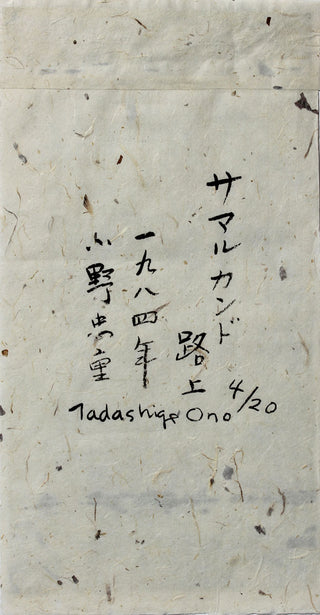 サマルカンド
路上
一九八四年
小野忠重
Tadashige Ono 4/20